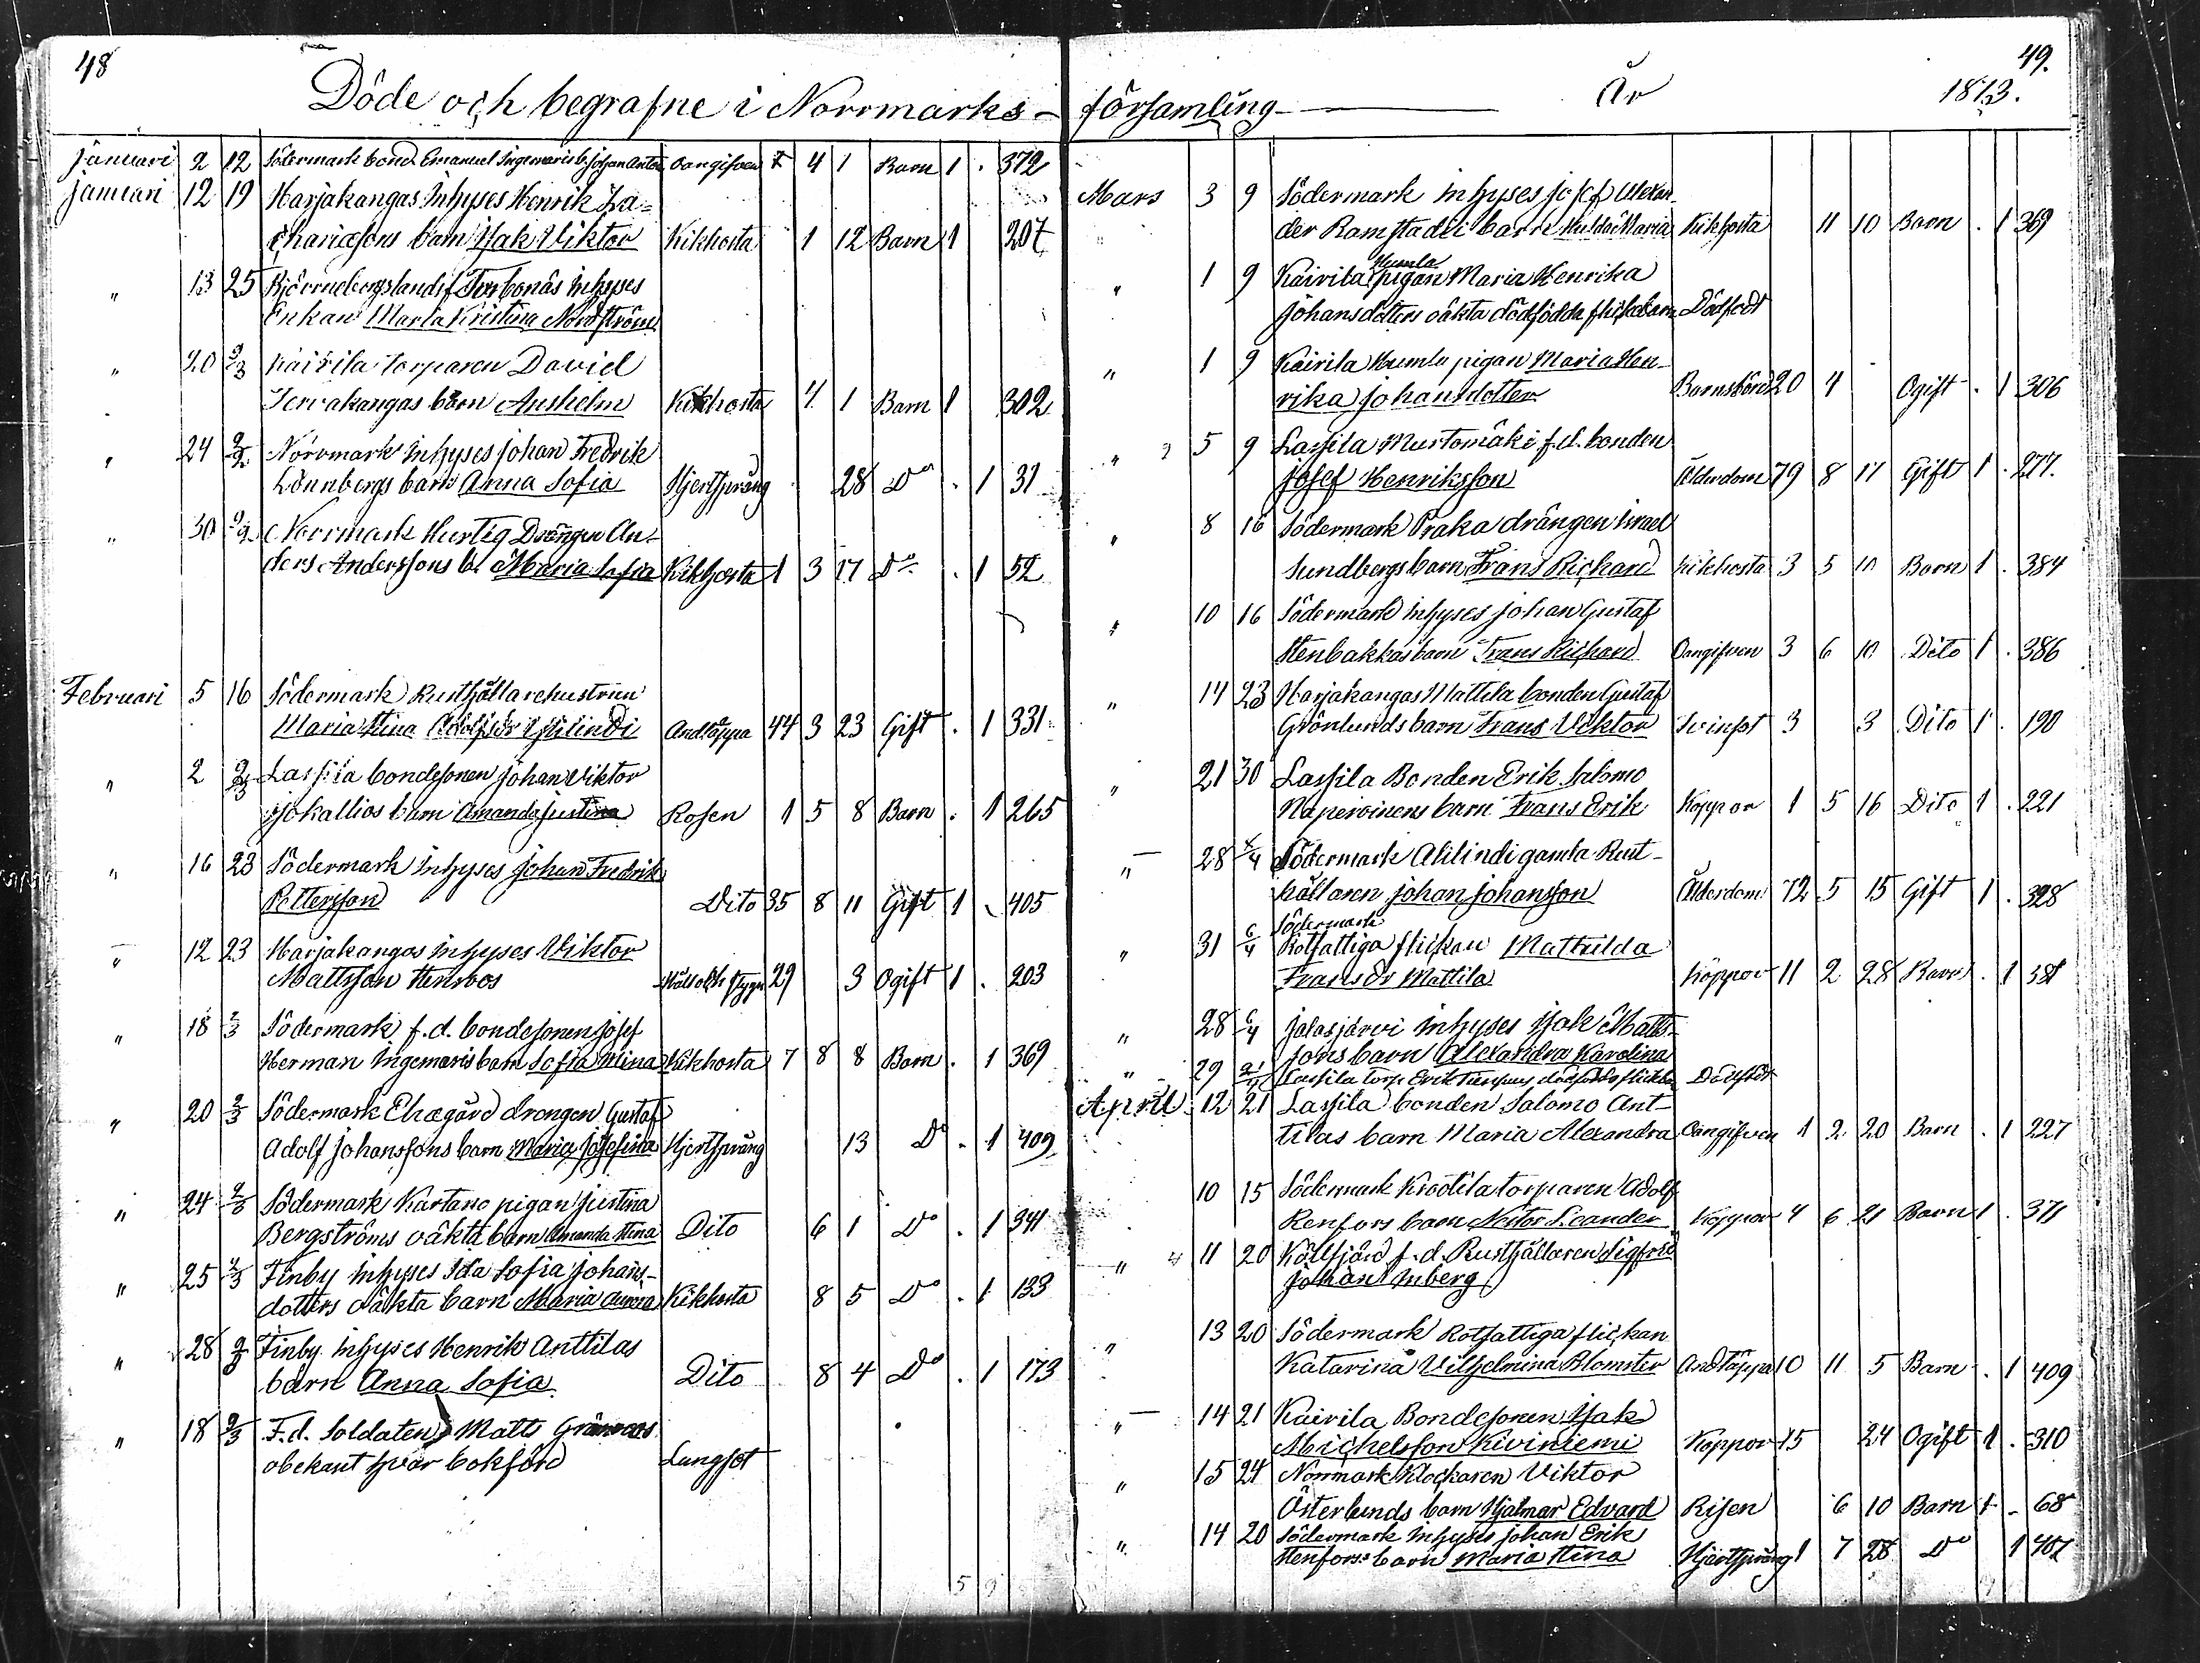 48
Döde och begrafne i Norrmarks-
januari 2 12 Södermark bond. Emanuel Ingemaris b. Johan Anton Oangifven 7 4 1 Barn 1 . 372
januari 12 19 Harjakangas Inhyses Henrik Za-
chariæsons barn Isak Viktor Kikhosta 1 12 Barn 1 207
" 13 25 Björneborgslands Inhyses
Enkan Maria Kristina Nordström
" 20 2/3 Kairila torparen David
Jervakangas barn Anshelm Kikhosta 4 1 Barn 1 302
" 24 9/2 Norrmark Inhyses Johan Fredrik
Lönnbergs barn Anna Sofia Hjertsprång 28 Do . 1 31
" 30 9/2 Norrmark Hurtig Drängen An-
ders Anderssons b. Maria Sofia Kikhosta 1 3 17 Do . 1 52
Februari 5 16 Södermark Rusthållarehustrun
Maria Stina Adolfsdr Ahlindi Andtäppa 44 3 23 Gift . 1 331
" 2 2/3 Lassila bondesonen Johan Viktor
Isokallios barn Amanda Justina Rosen 1 5 8 Barn . 1 265
" 16 23 Södermark Inhyses Johan Fredrik
Pettersson Dito 35 8 11 Gift 1 . 405
" 12 23 Harjakangas Inhyses Viktor
Mattsson Stenroos Håll och stygn 29 3 Ogift 1 . 203
" 18 2/3 Södermark f.d. bondesonen Josef
Herman Ingemaris barn Sofia Mina Kikhosta 7 8 8 Barn . 1 369
" 20 2/3 Södermark drängen Gustaf
Adolf Johanssons barn Maria Josefina Hjertsprång 13 Do . 1 409
" 24 2/3 Södermark Kartano pigan Justina
Bergströms oäkta barn Amanda Stina Dito 6 1 Do . 1 341
" 25 2/3 Finby Inhyses Ida Sofia Johans-
dotters oäkta barn Maria Aurora Kikhosta 8 5 Do . 1 133
" 28 2/3 Finby Inhyses Henrik Anttilas
barn Anna Sofia Dito 8 4 Do . 1 173
" 18 2/3 F.d. Soldaten Matts Grönroos
obekant hvar bokförd Lungsot
49.
församling År 1873.
Mars 3 9 Södermark inhyses Josef Alexan-
der Ramstadii barn Hulda Maria Kikhosta 11 10 Barn . 1 369
Humla
" 1 9 Kairila pigan Maria Henrika
Johansdotters oäkta dödfödda flickebarn Dödfödt
" 1 9 Kairila Humla pigan Maria Hen-
rika Johansdotter Barnsbörd 20 4 Ogift . 1 306
" 5 9 Lassila Mustomäki f.d. bonden
Josef Henriksson Ålderdom 79 8 17 Gift 1 . 277.
" 8 16 Södermark Praka drängen Israel
Sundbergs barn Frans Richard Kikhosta 3 5 10 Barn 1 . 384
" 10 16 Södermark inhyses Johan Gustaf
Stenbakkas barn Frans Richard Oangifven 3 6 10 Dito 1 . 386
" 14 23 Harjakangas Mattila bonden Gustaf
Grönlunds barn Frans Viktor 3 3 Dito 1 . 190
" 21 30 Lassila Bonden Erik Salomo
Naperoinens barn Frans Erik Koppor 1 5 16 Dito 1 . 221
" 28 6/4 Södermark Ahlindi gamla Rust-
hållaren Johan Johansson Ålderdom 72 5 15 Gift 1 . 328
Södermark
" 31 6/4 Rotfattiga flickan Mathilda
Fransdr Mattila Koppor 11 2 28 Barn . 1 381
" 28 6/4 Jalasjärvi inhyses Isak Matts-
sons barn Alexandra Karolina
" 29 21/4 Lassila torp. Erik dödfödda flickeb. Dödfödt
April 12 21 Lassila bonden Salomo Ant-
tilas barn Maria Alexandra Oangifven 1 2 20 Barn . 1 227
10 15 Södermark Krootila torparen Adolf
Renfors barn Nestor Leander Koppor 4 6 21 Barn 1 . 371
" 11 20 f.d. Rusthållaren Sigfrid
Johan Inberg
" 13 20 Södermark Rotfattiga flickan
Katarina Vilhelmina Blomster Andtäppa 10 11 5 Barn . 1 409
" 14 21 Kairila Bondesonen Isak
Michelsson Kiviniemi Koppor 15 24 Ogift 1 . 310
" 15 24 Norrmark Klockaren Viktor
Österlunds barn Hjalmar Edvard Risen 6 10 Barn 1 - 68
" 14 20 Södermark inhyses Johan Erik
Stenfors: barn Maria Stina Hjertsprång 1 7 28 Do 1 407